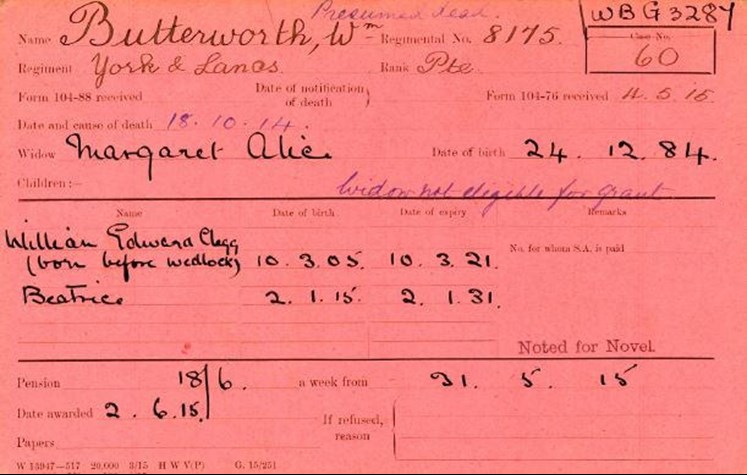 Presumed dead. WBG3287
Name Butterworth, Wm Regimental No. 8175. Case No. 60
Regiment York & Lancs. Rank Pte
Form 104-88 received Date of notification of death Form 104-76 received 4.5.15.
Date and cause of death 18.10.14.
Widow Margaret Alice Date of birth 24. 12. 84.
Children:—
Widow not eligible for grant
Name Date of birth Date of expiry Remarks
William Edward Clegg
(born before wedlock) 10. 3. 05. 10. 3. 21. No. for whom S.A. is paid
Beatrice 2. 1. 15. 2. 1. 31.
Noted for Novel.
Pension 18/6. a week from 31. 5. 15
Date awarded 2. 6. 15. If refused,
reason
Papers
W 13947—517 20,000 3/15 H W V(P) G. 15/251